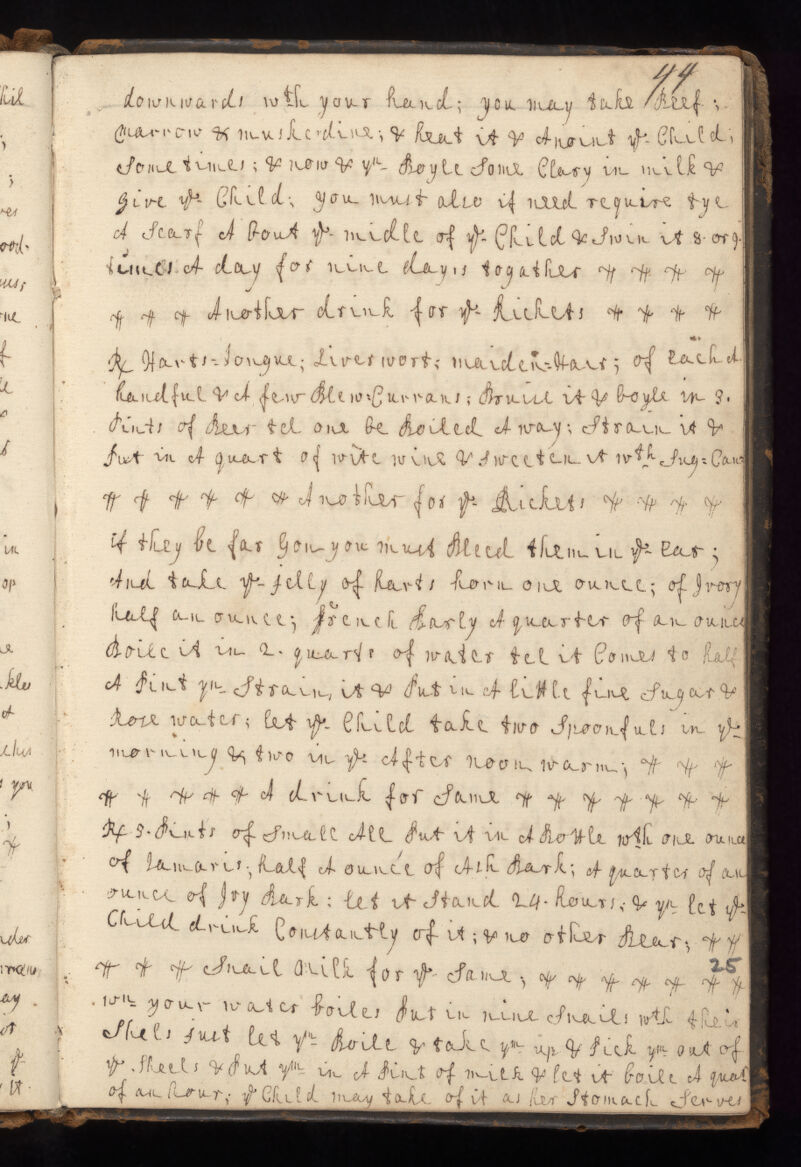 44
downwards wth your hand; you may take Beef;
Marrow & muskerdine; & heat it & Anoint ye Child;
Some times; & now & yn Boyle Some Clary in milk &
give ye Child; you must also if need require tye
A Scarf A bout ye midle of ye Child & Swin it 8 or 9
times A day for nine days togather
Another drink for ye Rickets
℞ Harts=Tongue; Liverwort; maiden=Hair; of Each A
handful & A few Blew=Currans; Bruise it & boyle in 3.
Pints of Beer tel one be Boiled A way; Strain it &
Put in A quart of wite wine & Sweeten it wth Sug=Can
Another for ye Rickets
if they be far Gon you must Bleed them in ye Ear;
And take ye Jelly of harts horn one ounce; of Ivory
half an ounce; french Barly A quarter of an ounce
Boile it in 2. quarts of water tel it Comes to half
A Pint yn Strain it & Put in A little fine Sugar &
Rose water; let ye Child take two Spoonfuls in ye
morning & two in ye After noon warm;
A drink for Same
℞ 3. Pints of Small Ale Put it in A Bottle wth one ounce
of Tamaris; half A ounce of Ash Bark; A quarter of an
ounce of Ivy Bark: let it Stand 24. hours; & yn let ye
Child drink Constantly of it; & no other Bear;
25
Snail Milk for ye Same;
wn your water boiles Put in nine Snails wth their
Shels Just let ym Boile & take ym up & Pick ym out of
ye Sheels & Put ym in A Pint of milk & let it boile A quat
of an hour; ye Child may take of it as her Stomach Serves